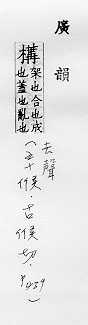 廣韻
構架也合也成
也蓋也亂也
去聲
(五十候·古候切·P439)